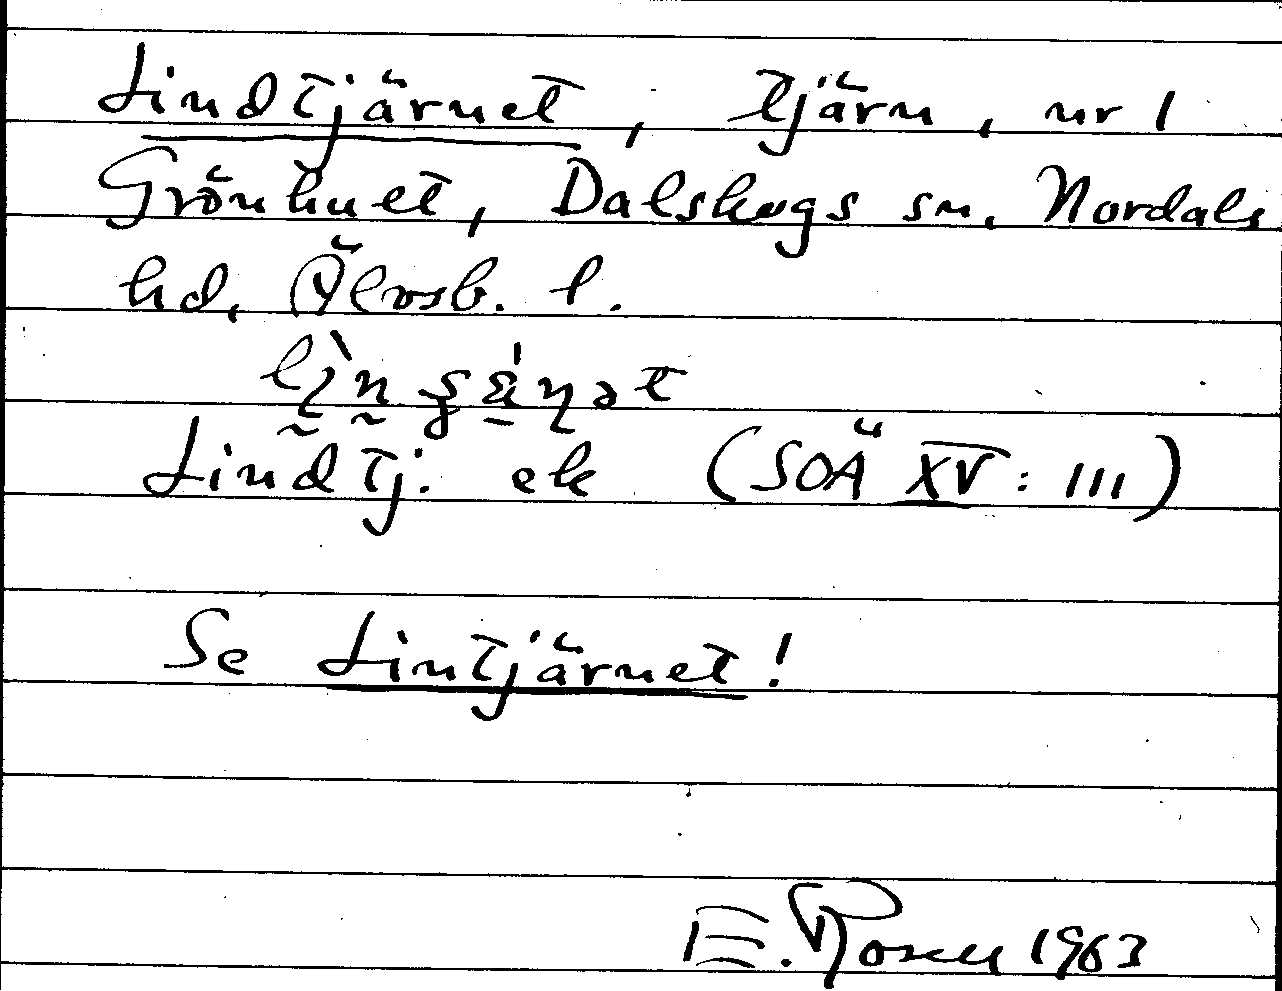 Lindtjärnet, tjärn, nr 1
Grönhult, Dalskogs sn, Nordals
hd, Älvsb. l.
Lindtj. ek (SOÄ XV: 111)
Se Lintjärnet!
E. Rosen 1963